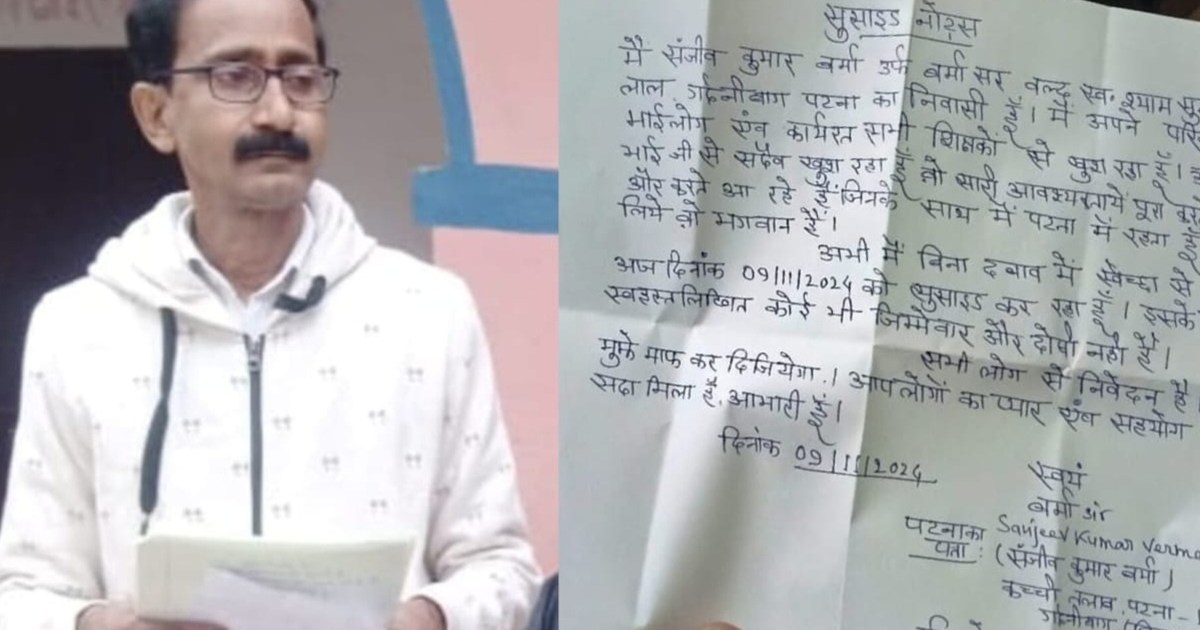 सुसाइड नोट्स
मैं संजीव कुमार वर्मा उर्फ वर्मा सर, वल्द स्व. श्याम सु
लाल गर्दनीबाग पटना का निवासी हूँ। मैं अपने परि
भाईलोग एंव कार्यरत सभी शिक्षकों से खुश रहा हूँ।
भाई जी से सदैव खुश रहा हूँ वो सारी आवश्यकतायें पूरा
और करते आ रहे हैं। जिनके साथ में पटना में रहता हूँ
लिये वो भगवान हैं।
अभी मैं बिना दबाव में स्वेच्छा से
आज दिनांक 09/11/2024 को सुसाइड कर रहा हूँ। इसके
स्वहस्तलिखित कोई भी जिम्मेवार और दोषी नहीं हैं।
सभी लोग से निवेदन है
मुझे माफ कर दिजियेगा। आपलोगों का प्यार एंव सहयोग
सदा मिला है, आभारी हूँ।
दिनांक 09/11/2024
स्वयं
वर्मा sir
Sanjeev Kumar Verma
पटना का पता : (संजीव कुमार वर्मा)
कच्ची तलाब, पटना -